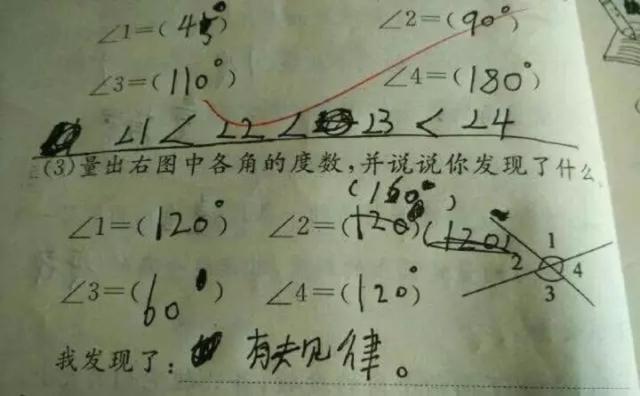 ∠1=(45°) ∠2=(90°)
∠3=(110°) ∠4=(180°)
∠1 < ∠2 < ∠3 < ∠4
(3)量出右图中各角的度数,并说说你发现了什么
(160°)
∠1=(120°) ∠2=(120°)(120) 1
2 4
∠3=(60°) ∠4=(120°) 3
我发现了: 有规律。